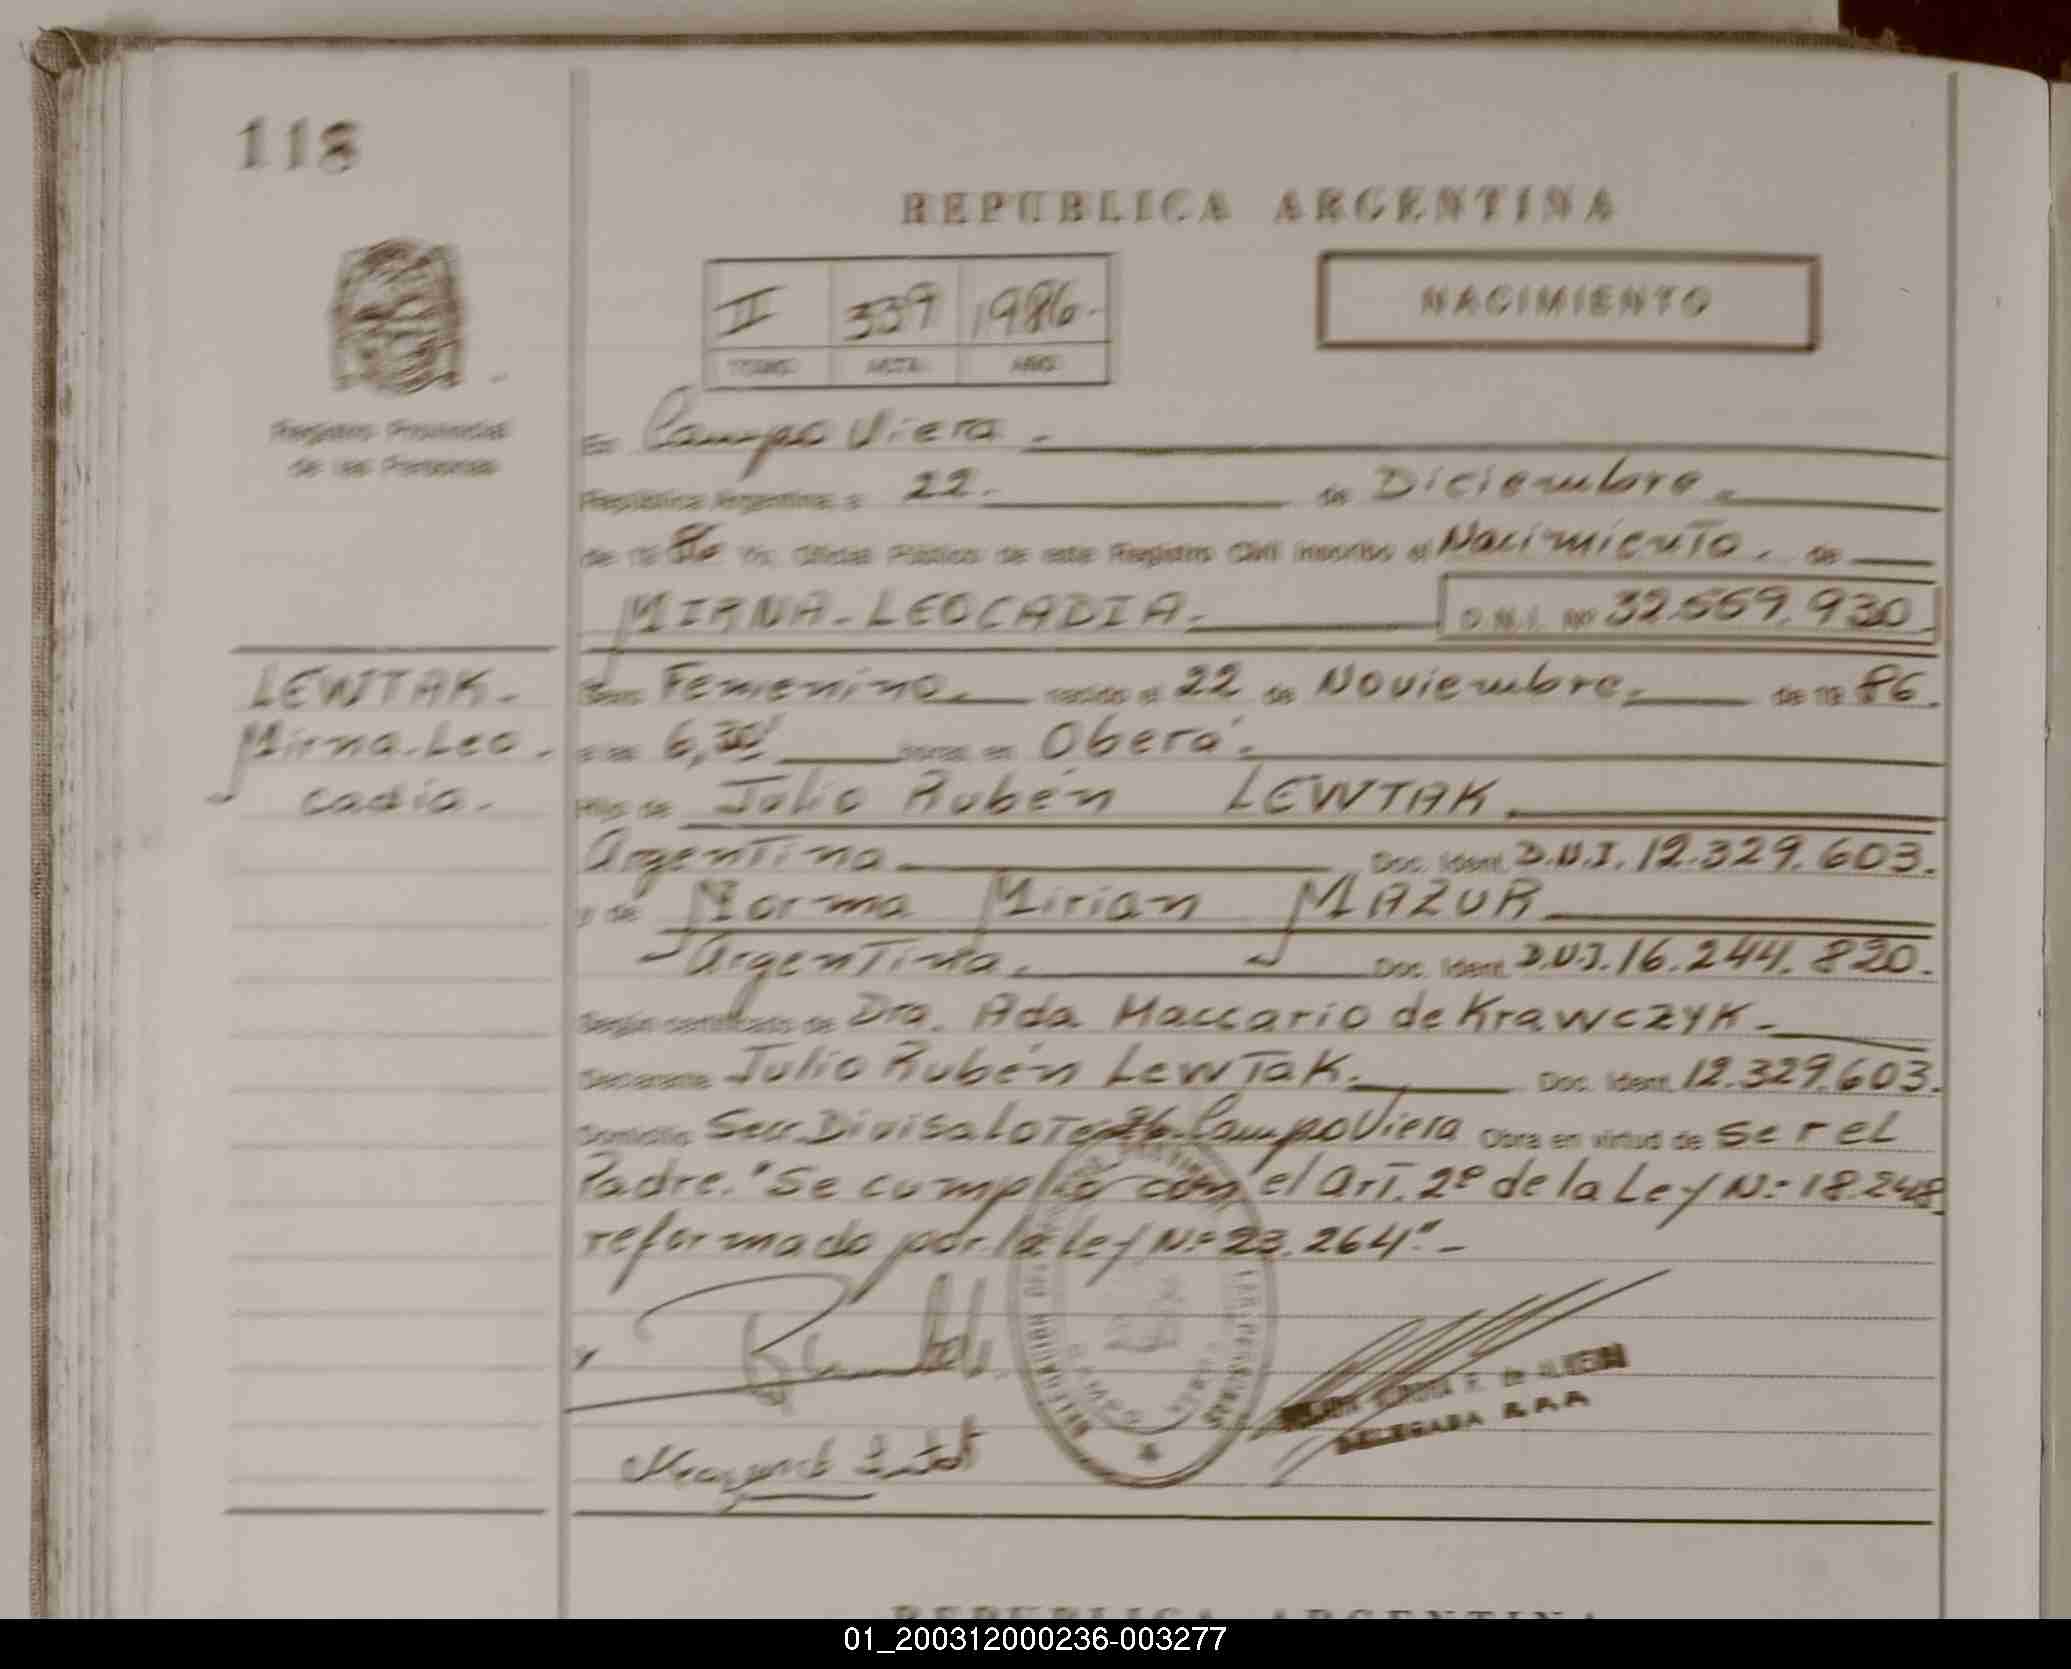 118
REPUBLICA ARGENTINA
II 339 1986.-
TOMO ACTA AÑO
NACIMIENTO
Registro Provincial
de las Personas
En Campo Viera.-
República Argentina, a 22.- de Diciembre.-
de 19 86 Yo, Oficial Público de este Registro Civil inscribo el Nacimiento. de
MIRNA-LEOCADIA.- D.N.I. Nº 32.559.930.
LEWTAK.-
Mirna-Leo.
cadia.-
Sexo Femenino.- nacido el 22 de Noviembre.- de 19 86.
a las 6,30' horas, en Oberá.-
Hijo de Julio Rubén LEWTAK.
Argentina.- Doc. Ident. D.N.I. 12.329.603.
y de Norma Mirian MAZUR
Argentina.- Doc. Ident. D.N.I. 16.244.820.
Según certificado de Dra. Ada Maccario de Krawczyk.-
Declarante Julio Rubén Lewtak.- Doc. Ident. 12.329.603.
Domicilio Secc. Divisa Lote 26-Campo Viera Obra en virtud de ser el
Padre."Se cumplió con el art. 2º de la Ley Nº 18.248,
reformado por la ley Nº 23.264".-
DELEGADA R.P.P.
REPUBLICA ARGENTINA
01_200312000236-003277